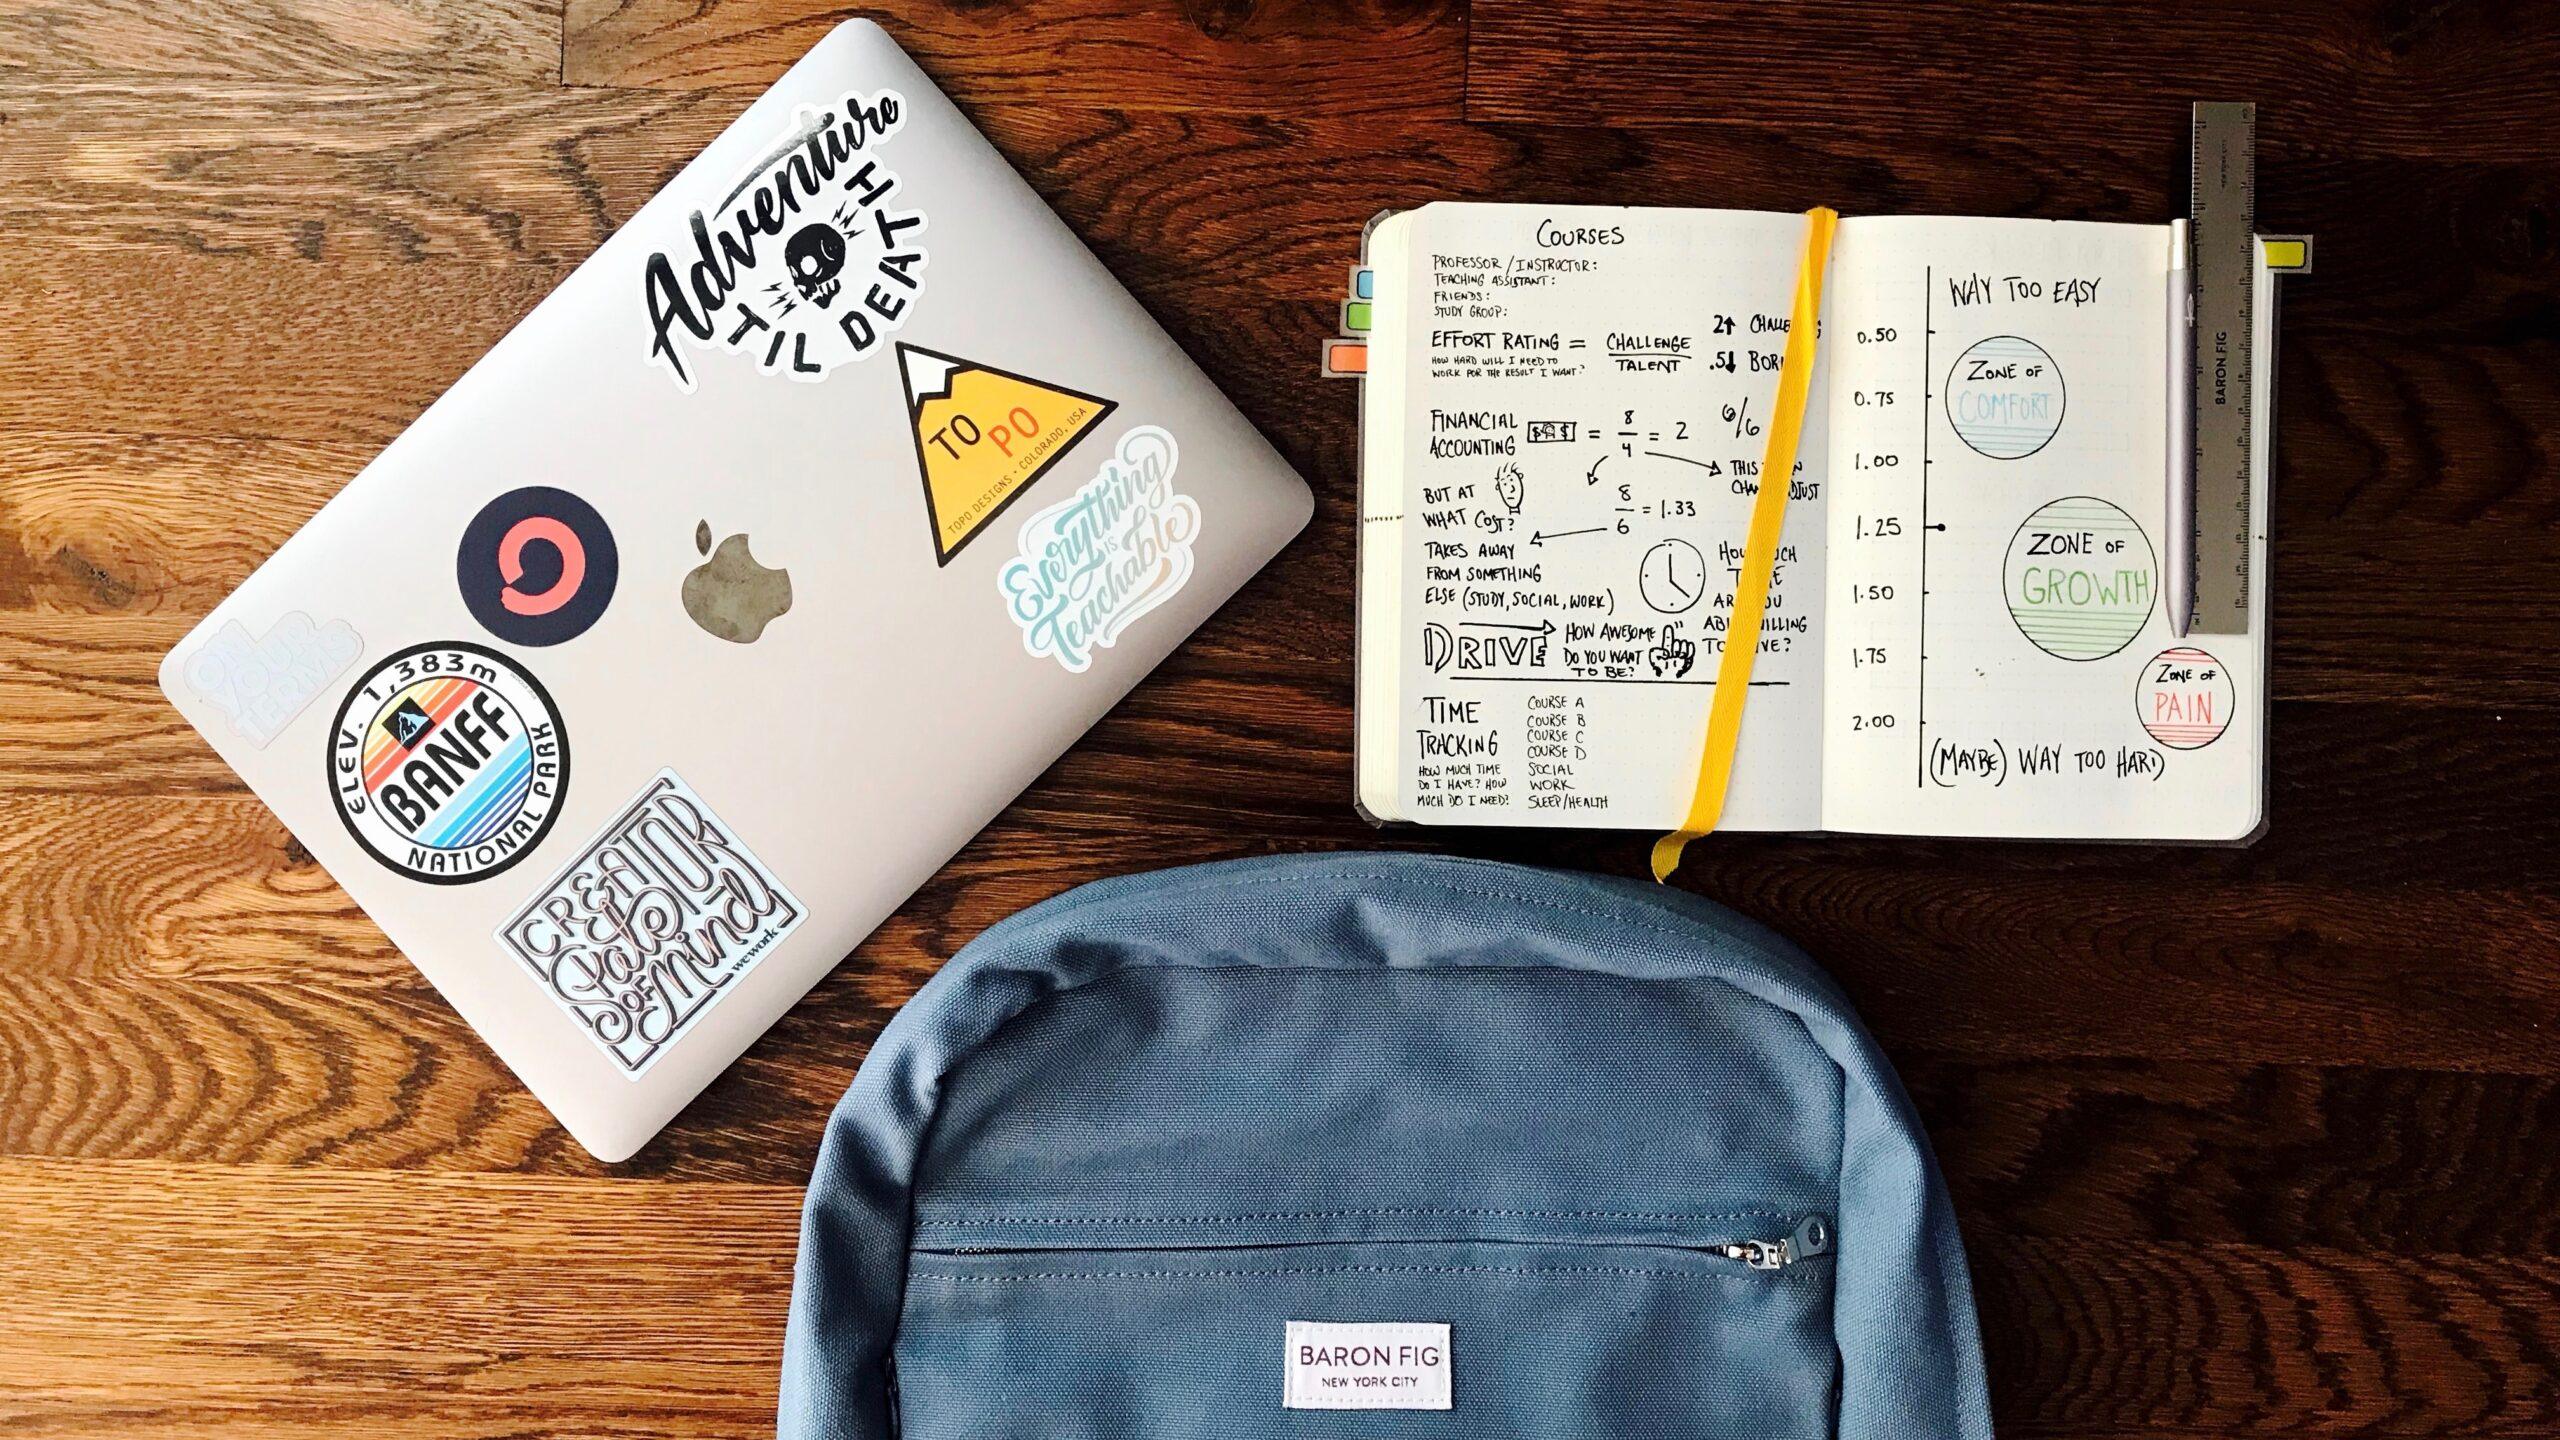 Adventure
TIL DEATH
TO
PO
TOPO DESIGNS - COLORADO, USA
Everything
IS
Teachable
ON
YOUR
TERMS
ELEV. 1,383m
BANFF
NATIONAL PARK
CREATOR
State
OF
Mind
wework
COURSES
PROFESSOR/INSTRUCTOR:
TEACHING ASSISTANT:
FRIENDS:
STUDY GROUP:
EFFORT RATING = CHALLENGE
TALENT
HOW HARD WILL I NEED TO
WORK FOR THE RESULT I WANT?
2↑
.5↓
FINANCIAL
ACCOUNTING
$ $ = 8/4 = 2
6/6
THIS
BUT AT
WHAT COST?
8/6 = 1.33
TAKES AWAY
FROM SOMETHING
ELSE (STUDY, SOCIAL, WORK)
TO
DRIVE
HOW AWESOME
DO YOU WANT
TO BE?
TIME
TRACKING
HOW MUCH TIME
DO I HAVE? HOW
MUCH DO I NEED?
COURSE A
COURSE B
COURSE C
COURSE D
SOCIAL
WORK
SLEEP/HEALTH
WAY TOO EASY
0.50
0.75
1.00
1.25
1.50
1.75
2.00
ZONE OF
COMFORT
ZONE OF
GROWTH
ZONE OF
PAIN
(MAYBE) WAY TOO HARD
BARON FIG
BARON FIG
NEW YORK CITY